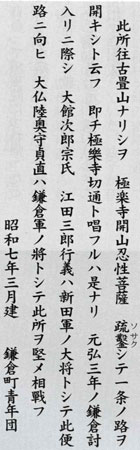 此所往古畳山ナリシヲ 極楽寺開山忍性菩薩 疏鑿シテ一条ノ路ヲ
ソサク
開キシト云フ 即チ極樂寺切通ト唱フルハ是ナリ 元弘三年ノ鎌倉討
入リニ際シ 大館次郎宗氏 江田三郎行義ハ新田軍ノ大将トシテ此便
路ニ向ヒ 大仏陸奥守貞直ハ鎌倉軍ノ將トシテ此所ヲ堅メ相戰フ
昭和七年三月建 鎌倉町青年団